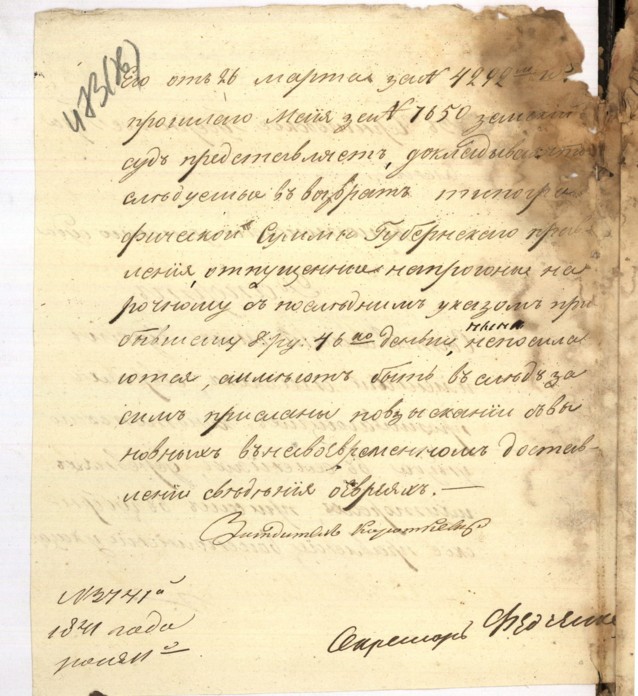 473(к)
Его отъ 26 мартая за № 4292 и 10
прошлаго Маія за № 7650 земскій
судъ представляетъ, докладывая что
слѣдуемыя въ возвратъ типогра
фической Суммы Губернскаго прав
ленія, отпущенныя на прогоны на
рочному съ послѣднимъ указомъ при
бывшему 8 ру: 46 ко деньги, нынѣ непосыла
ются, а имѣютъ быть въ слѣдъ за
симъ присланы по взысканіи съ ви
новныхъ въ несвоевременномъ достав-
леніи свѣдѣнія о евреяхъ. —
Засѣдатель
№ 3741й
1841 года
Секретарь Федченко